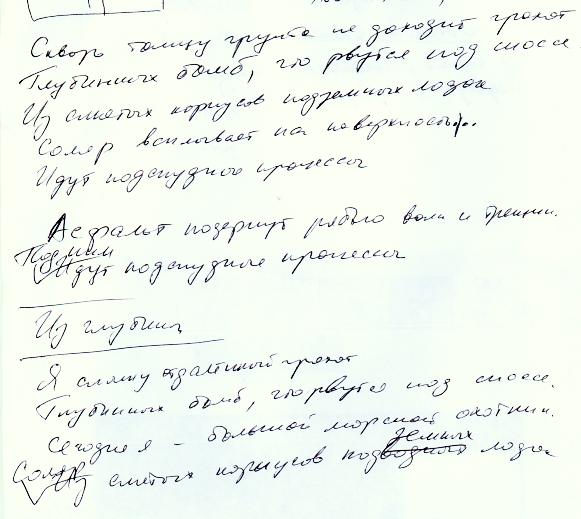 Сквозь толщу грунта не доходит грохот
Глубинных бомб, что рвутся под шоссе.
Из смятых корпусов подземных лодок
Соляр всплывает на поверхность...
Идут подспудно процессы
Асфальт подернут рябью волн и трещин.
Под ним
Идут подспудные процессы
Из глубины
Я слышу отдаленный грохот
Глубинных бомб, что рвутся под шоссе.
Сегодня я – большой морской охотник.
земных
Соляр Из смятых корпусов подводных лодок